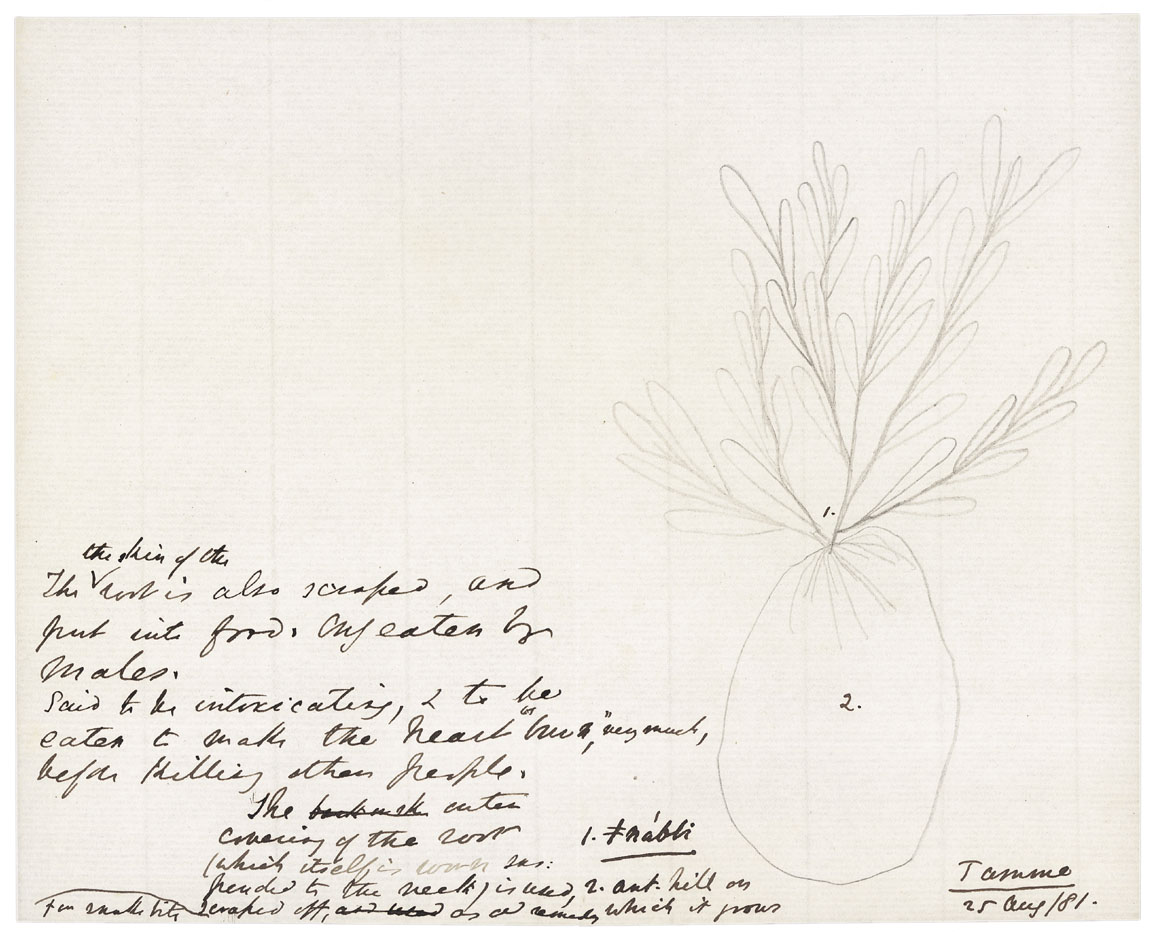 the skin of the
The root is also scraped, and
put into food. Only eaten by
males.
Said to be intoxicating, & to be
eaten to make the heart "burn," very much,
before killing other people.
The outer
covering of the root
(which itself is worn sus:
pended to the neck) is used,
For snake bite scraped off, and used as a remedy
1.
2.
1. ǂnábbi
2. ant-hill on
which it grows
Tamme
25 Aug/81.